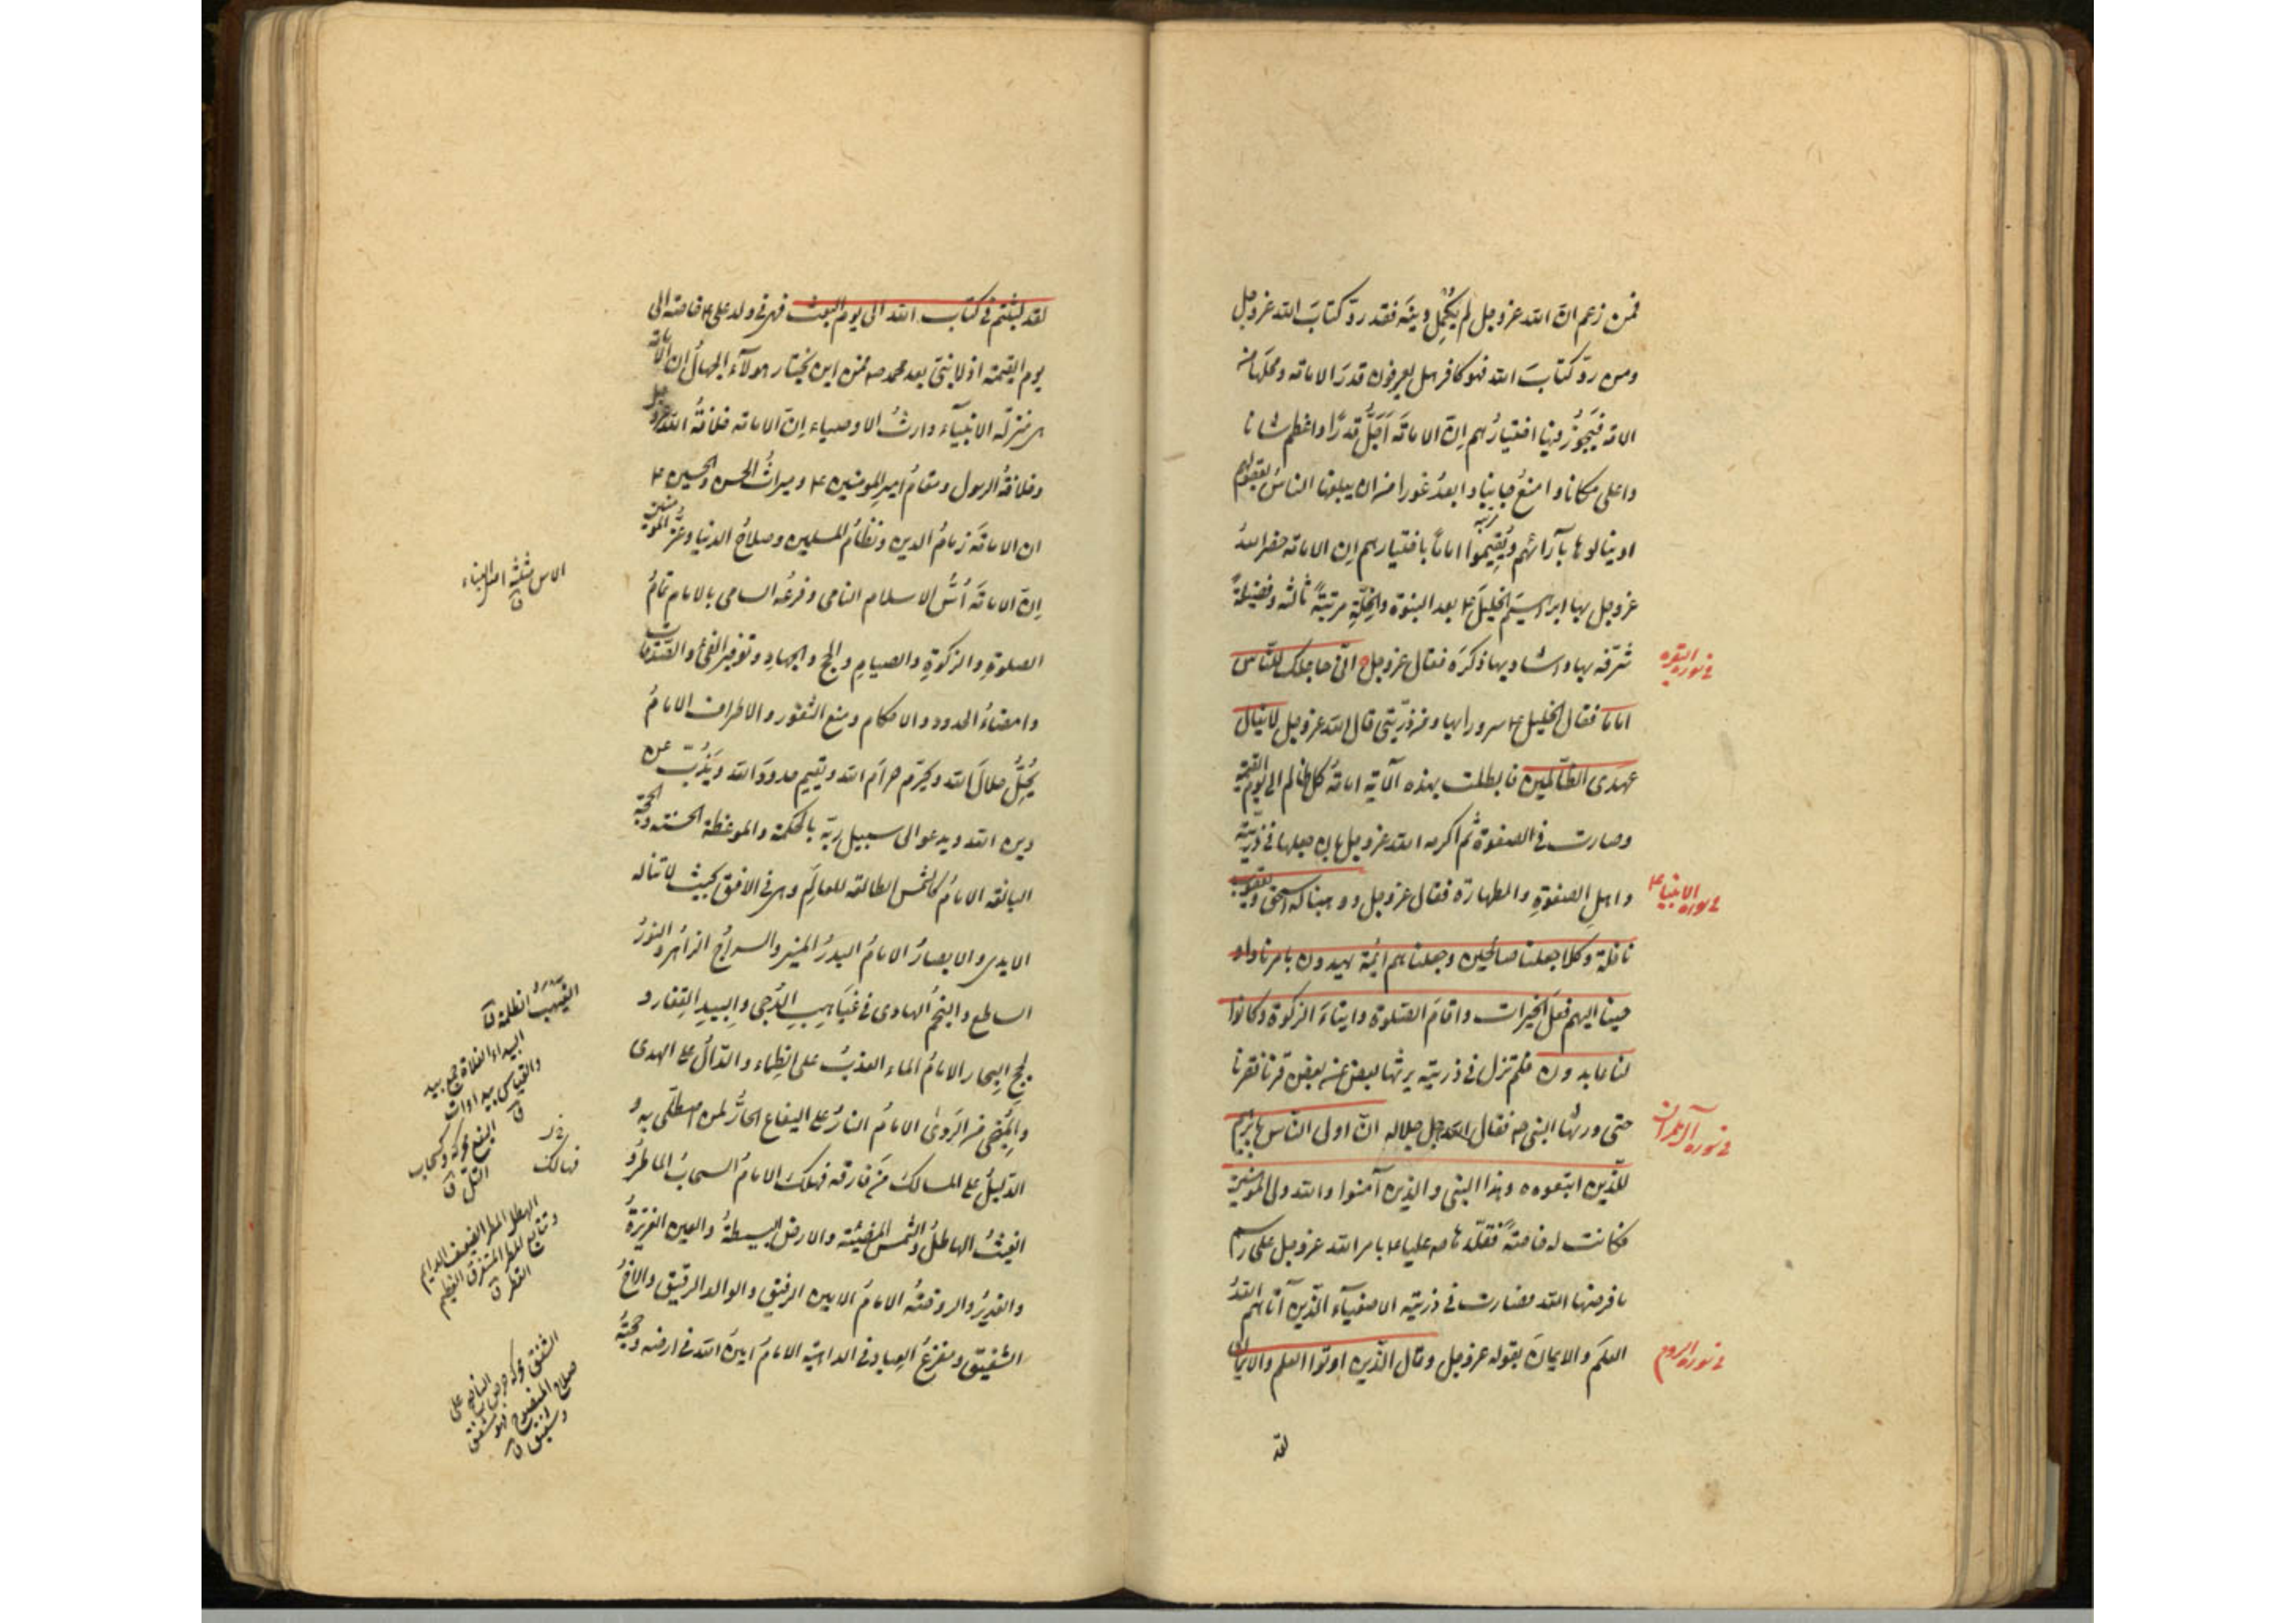 فمن زعم ان الله عز وجل لم يُكمِل دينَه فقد ردّ كتابَ الله عز وجل
ومن ردّ كتابَ الله فهو كافر هل يعرفون قدرَ الامامه ومحلّها من
الامه فيَجوزُ فيها اختيارُهم اِنّ الامامَه اَجَلُّ قدرًا واعظم شانا
واعلى مكانا وامنعُ جانبا وابعدُ غورا من ان يبلغها الناسُ بعقولهم
او ينالوها بآرائهم ويُقِيموا اماماً باختيارهم اِن الامامه خصّ اللهُ
عز وجل بها ابراهيمَ الخليلَ ع بعد النبوة والخُلّةِ مرتبةً ثالثه وفضيلةً
شرّفه بها واشاد بها ذكرَه فقال عز وجل انّى جاعلك للنّاس
في سورة البقره
اماما فقال الخليل ع سرورا بها ومن ذرّيتى قال الله عز وجل لا ينال
عهدى الظّالمين فابطلت بهذه الآية امامةُ كل ظالم الى يوم القيمة
وصارت فى الصفوة ثم اكرمه الله عز وجل بان جعلها فى ذرّيّته
واهلِ الصفوةِ والطهارة فقال عز وجل ووهبنا له اسحق ويعقوب
في سورة الانبياء
نافلة وكلا جعلنا صالحين وجعلناهم ائمة يهدون بامرنا واو
حينا اليهم فعلَ الخيرات واقامَ الصّلوة وايتاءَ الزكوة وكانوا
لنا عابدون فلم تزل فى ذريته يرثها بعض عن بعض قرنا فقرنا
حتى ورثها النبى ص فقال الله جل جلاله انّ اولى النّاس بابرهيم
في سورة آل عمران
للّذين اتبعوه وهذا النبى والذين آمنوا والله ولى المؤمنين
فكانت له خاصّةً فقلّدها ص عليا ع بامر الله عز وجل على رسم
ما فرضها الله فصارت فى ذريته الاصفيآء الذين آتاهم اللهُ
العلمَ والايمانَ بقوله عز وجل وقال الّذين اوتوا العلم والايمان
في سورة الروم
لقد
لقد لبثتم فى كتاب الله الى يوم البعث فهى فى ولد على ع خاصه الى
يوم القيمة اذ لا نبىّ بعد محمد ص فمن اين يختار هولآء الجهالُ اِن الامامه
هى منزلَة الانبيآء وارثُ الاوصياء اِنّ الامامه خلافةُ الله عز وجل
وخلافةُ الرسول ومقامُ امير المومنين ع وميراثُ الحسن والحسين ع
ان الامامَة زمامُ الدين ونظامُ المسلمين وصلاحُ الدنيا وعزُّ المومنين
اِنّ الامامَة اُسُّ الاسلام النامى وفرعُه السامى بالامام تمامُ
الاس مثلثه اصل البناء ق
الصلوةِ والزكوةِ والصيامِ والحج والجهادِ وتوفير الفئ والصّدقات
وامضاءُ الحدود والاحكام ومنع الثغور والاطراف الامامُ
يُحِلّ حلالَ الله ويحرّم حرامَ الله ويقيم حدودَ الله ويَذُبّ عن
دين الله ويدعو الى سبيل ربّه بالحكمة والموعظة الحسنه والحجّة
البالغه الامامُ كالشمس الطالعه للعالَم وهى فى الافق بحيث لا تناله
الايدى والابصارُ الامامُ البدرُ المنير والسراجُ الزاهر والنورُ
الساطع والنجمُ الهادى فى غَيَاهِبِ الدُّجى والبيدِ القِفار و
الغيهب الظلمة ق
لجج البحار الامامُ الماء العذبُ على الظماء والدّالُّ على الهدى
البيداء الفلاة جمع بيد
والقياس بيداوات
ق
والمُنجى من الرّدىٰ الامامُ النارُ على اليفاع الحارُّ لمن اصطلى به و
اليفع محركة وكسحاب
التل ق
الدّليلُ على المسالك مَن فارقه فهلك الامامُ السحابُ الماطرُ و
فهالك
الغيثُ الهاطلُ والشّمس المضيئه والارض البسيطةُ والعين الغزيرةُ
الهطل المطر الضعيف الدايم
وتتابع المطر المتفرق العظيم
القطر ق
والغديرُ والروضةُ الامامُ الامين الرفيق والوالد الرقيق والاخُ
الشفيق ومفزعُ العباد فى الداهية الامامُ امينُ الله فى ارضه وحجتُه
الشفق محركه حرص الناصح على
صلاح المنصوح فهو مشفق
وشفيق ق